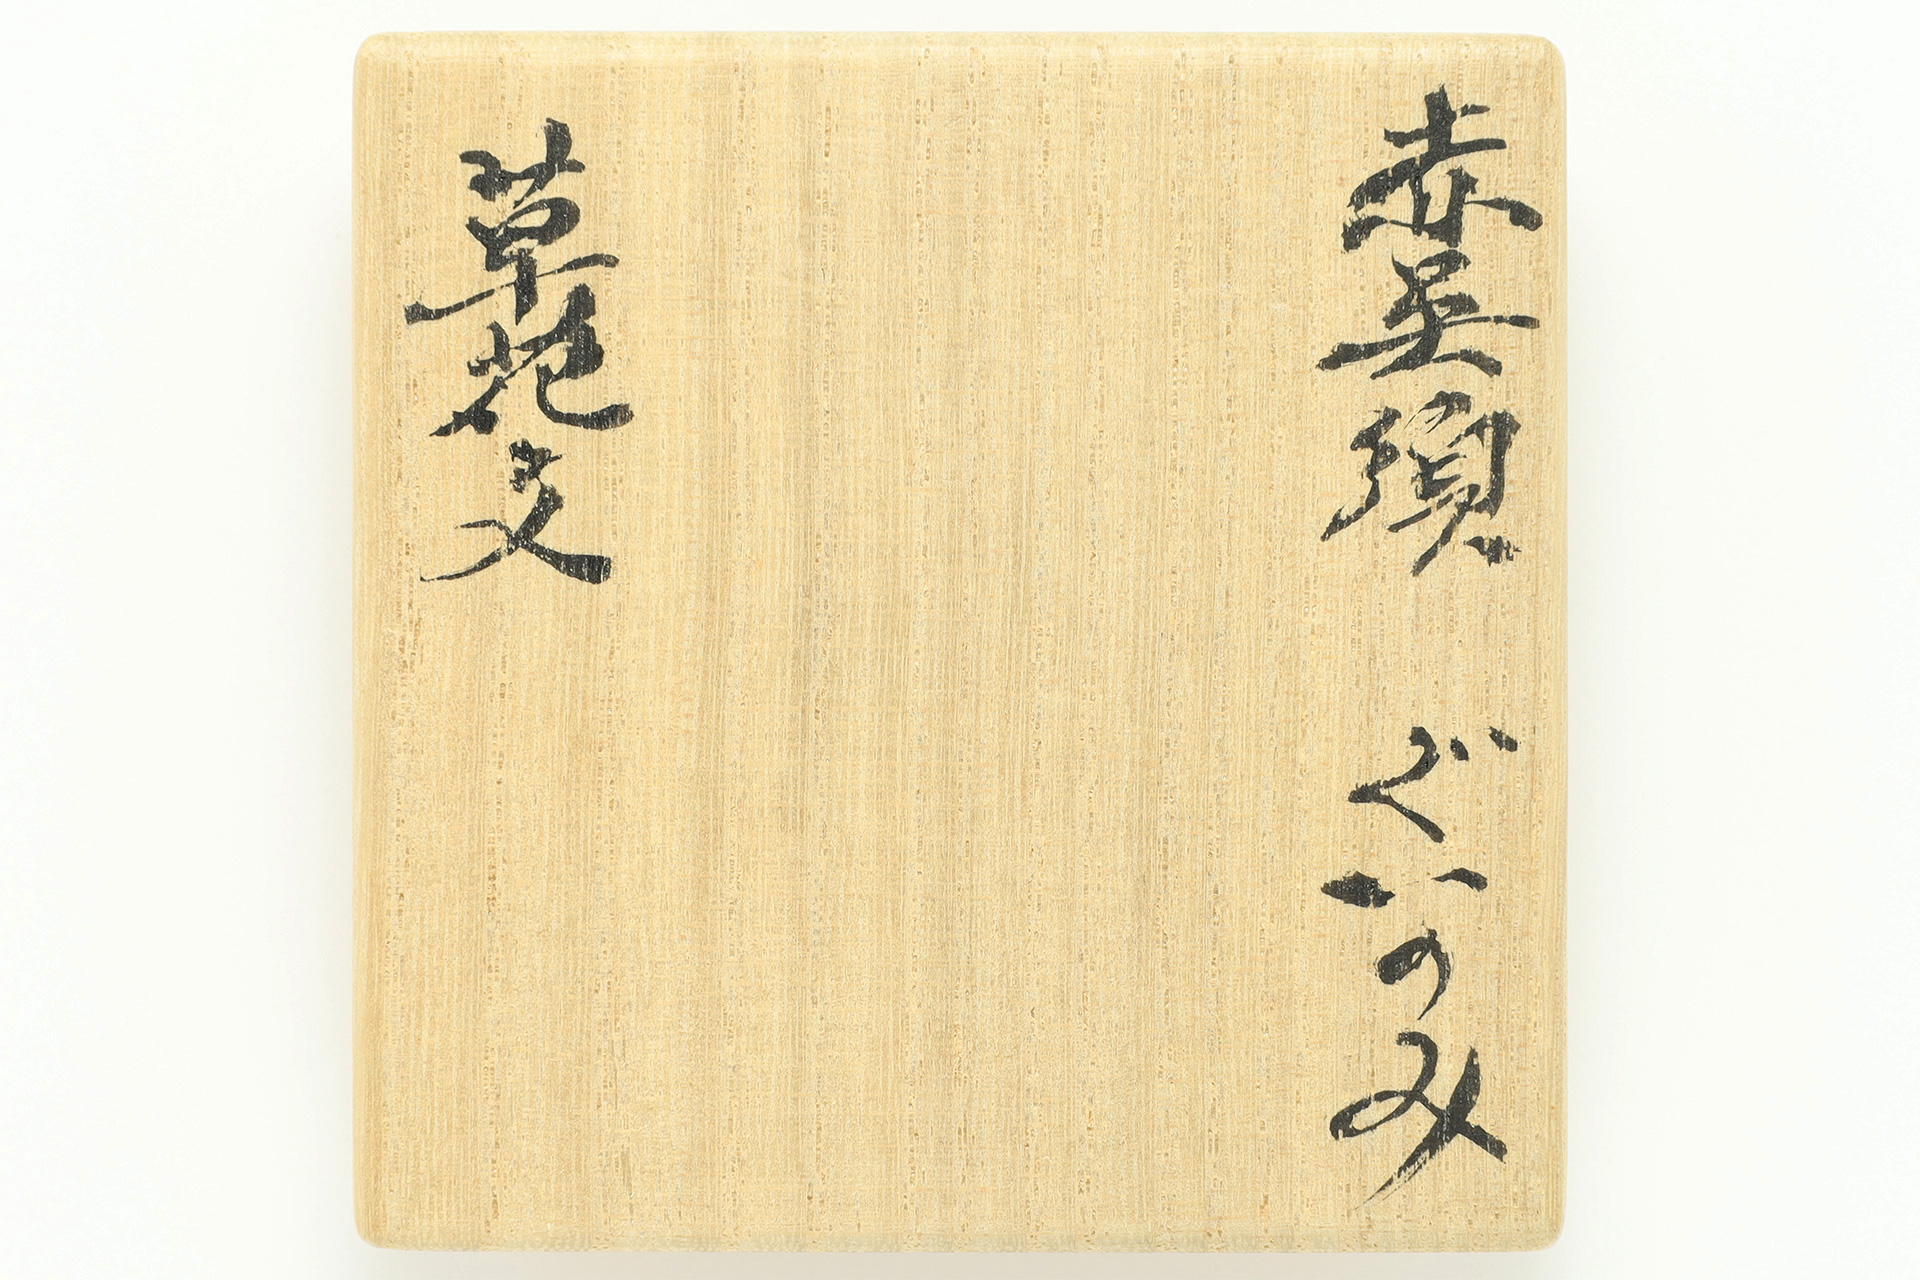 赤呉須 ぐいのみ
草花文